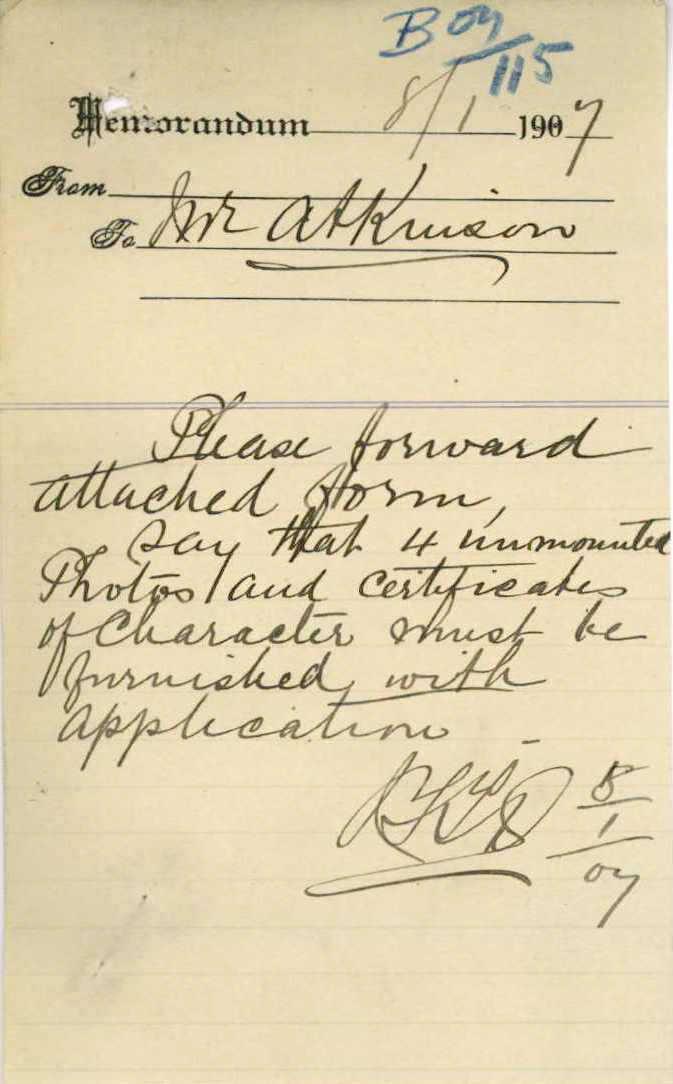 B 07/115
Memorandum 8/1 1907
From
To Mr Atkinson
Please forward
attached form,
say that 4 unmounted
Photos and certificates
of Character must be
furnished with
application
8/1/07